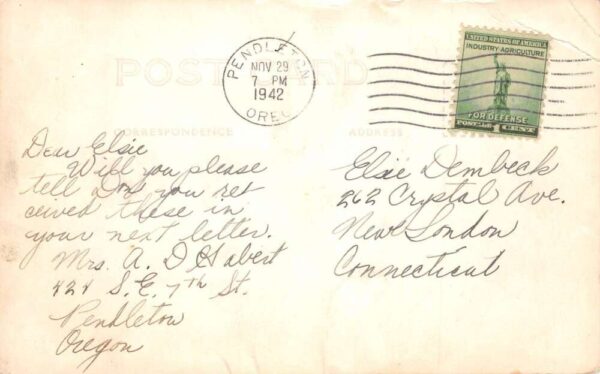 POST CARD
PENDLETON
NOV 29
7 PM
1942
OREG
UNITED STATES OF AMERICA
INDUSTRY-AGRICULTURE
FOR DEFENSE
POSTAGE 1 CENT
CORRESPONDENCE
ADDRESS
Dear Elsie
Will you please
tell Don you ret
ceived these in
your next letter.
Mrs. A. D
S. E. 7th St.
Pendleton
Oregon
Elsie Dembeck
262 Crystal Ave.
New London
Connecticut